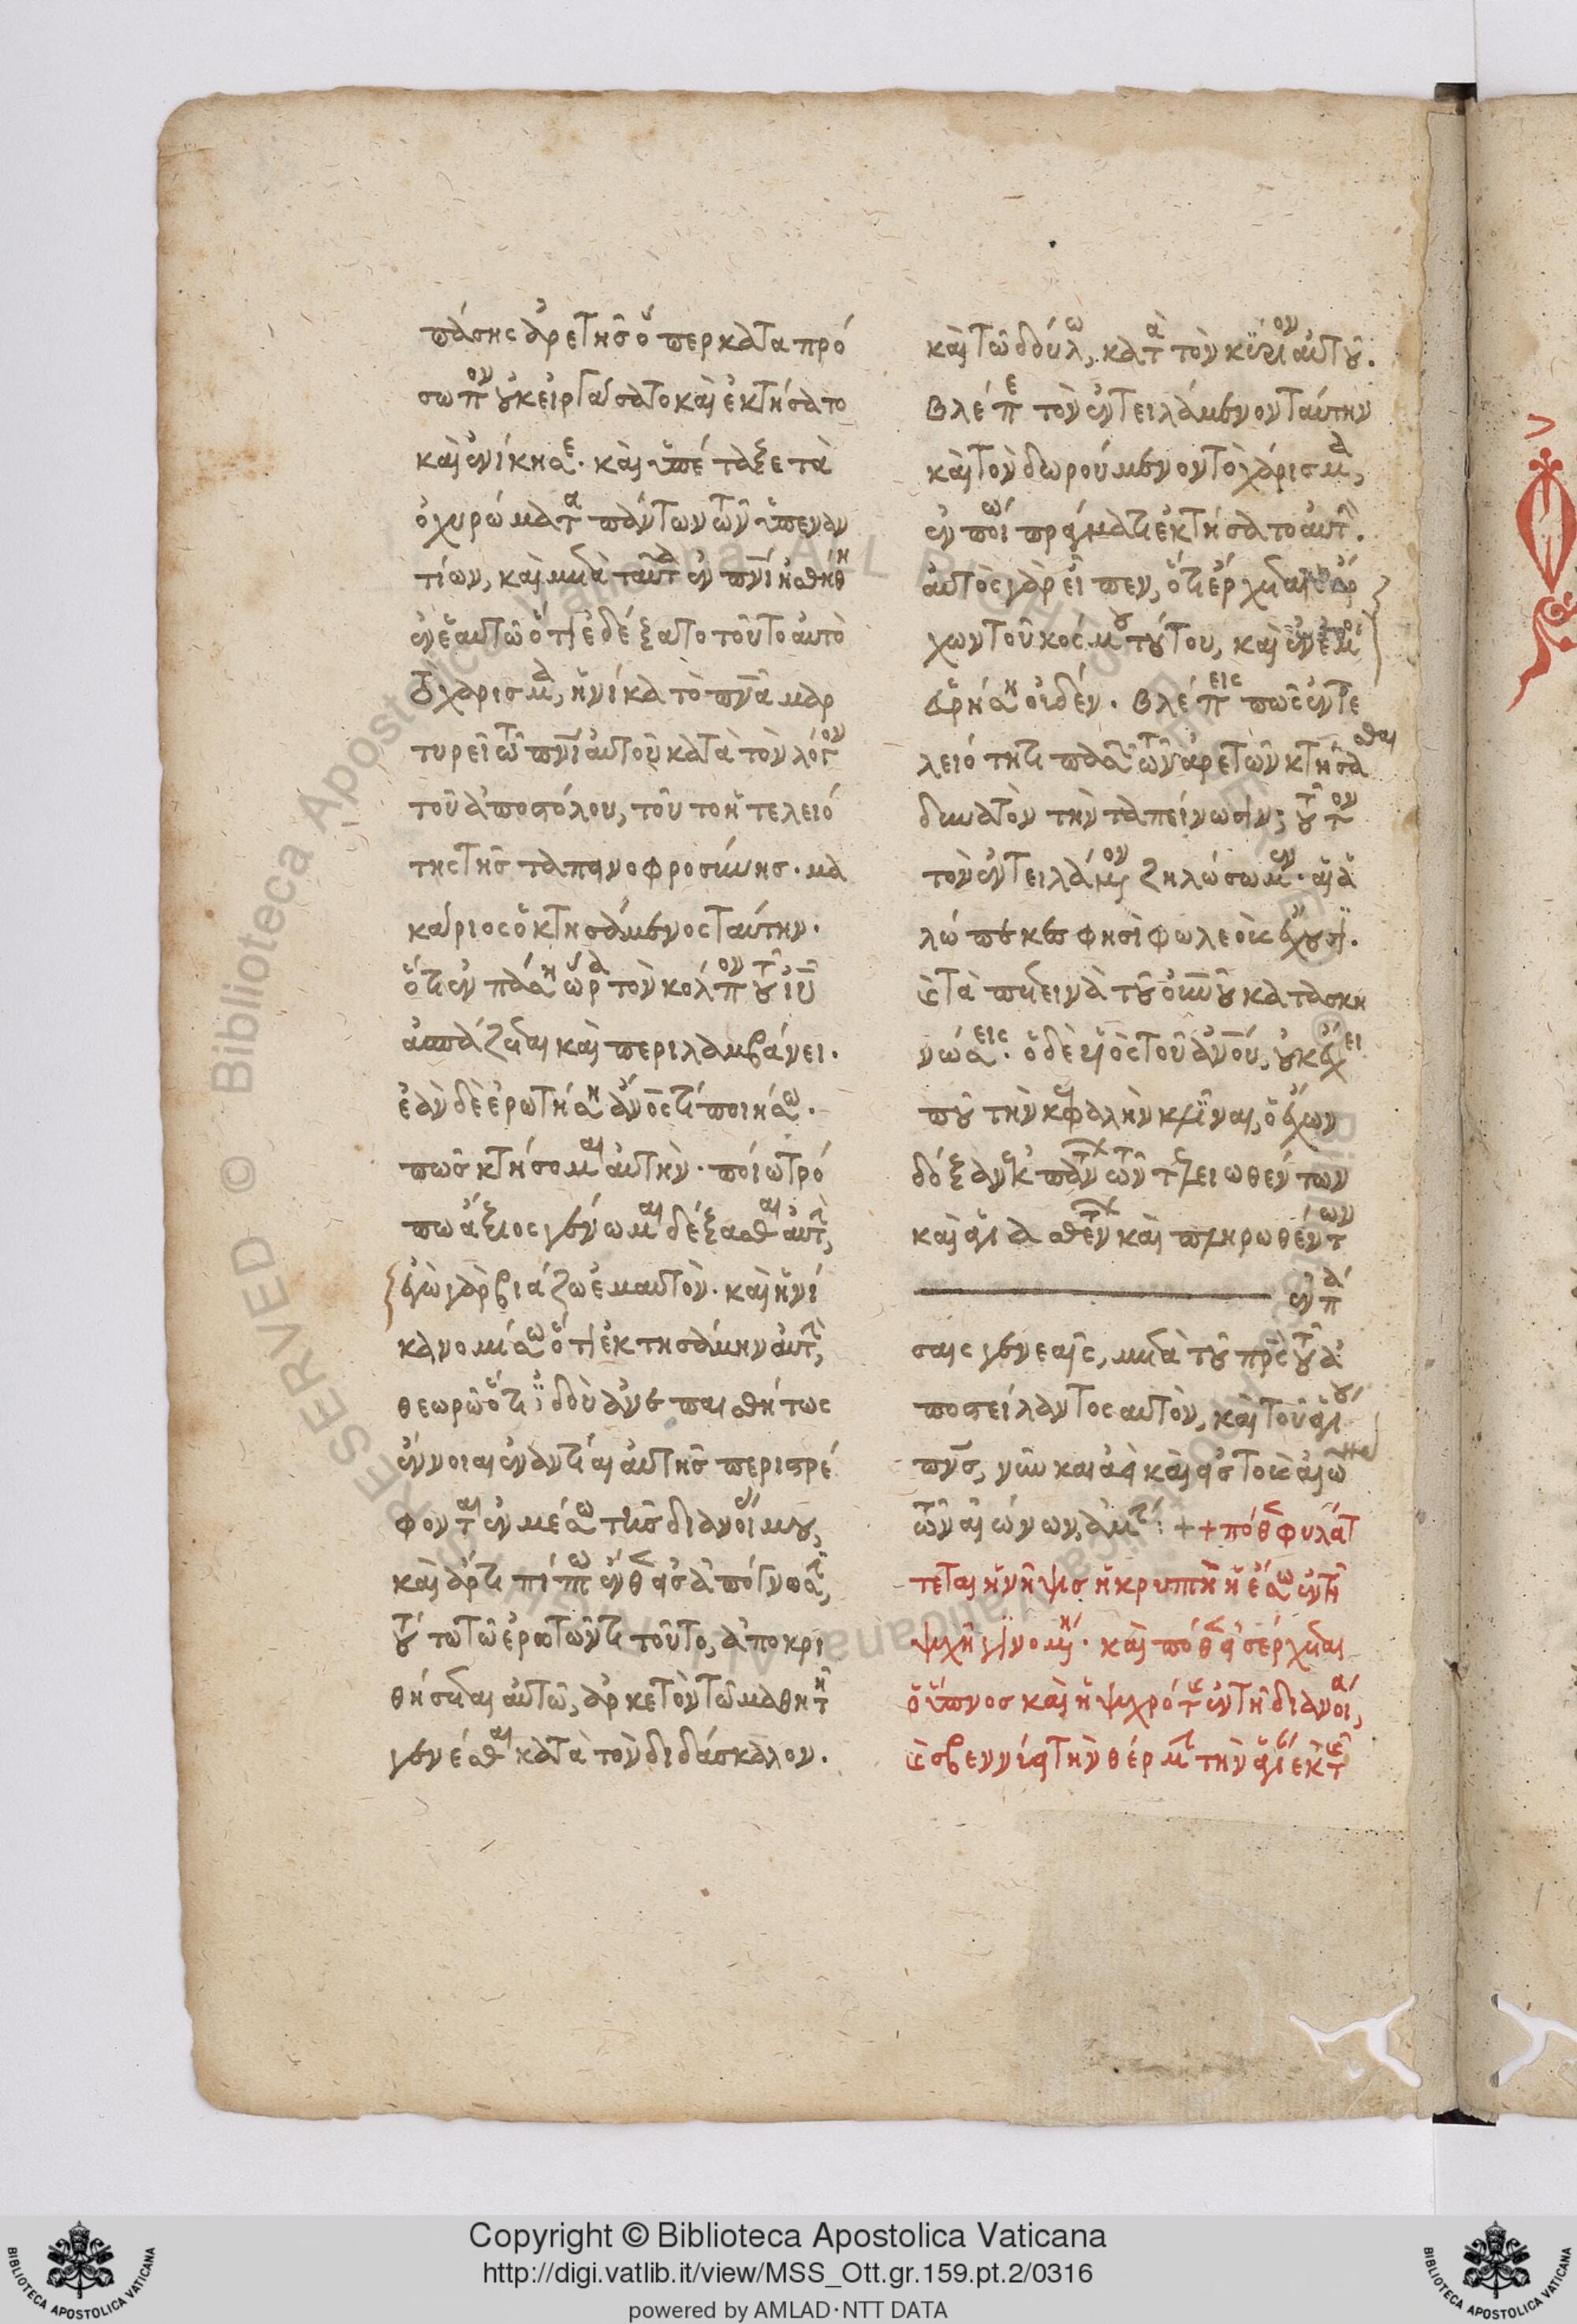 πάσης ἀρετῆς ὅπερ κατα πρό
σωπον οὐκ εἰργάσατο καὶ ἐκτήσατο
καὶ ἐνίκησε· καὶ ὑπέταξε τὰ
ὀχυρώματα πάντων τῶν ὑπεναν
τίων, καὶ μετὰ ταῦτα ἐν πνι ᾐσθήθη
ἐν ἑαυτῶ ὅτι ἐδέξατο τοῦτο αὐτὸ
τὸ χάρισμα, ἡνίκα τὸ πνα μαρ
τυρεῖ τῶ πνι αὐτοῦ κατὰ τὸν λόγον
τοῦ ἀποστόλου, τοῦτο ἡ τελειό
της τῆς ταπεινοφροσύνης· μα
κάριος ὁ κτησάμενος ταύτην·
ὅτι ἐν πάση ὥρα τὸν κόλπον τοῦ ιυ
ἀσπάζεται καὶ περιλαμβάνει·
ἐὰν δὲ ἐρωτήση ανος τί ποιήσω·
πῶς κτήσομαι αὐτὴν· ποίω τρό
πω ἄξιος γένωμαι δέξασθαι αὐτὴν,
ἐγὼ γὰρ βιάζω ἐμαυτὸν· καὶ ἡνί
κα νομίσω ὅτι ἐκτησάμην αὐτὴν,
θεωρῶ ὅτι ἰδοὺ ἀνεπαισθήτως
ἔννοιαι ἐναντίαι αὐτῆς περιστρέ
φονται ἐν μέσω τῆς διανοίας μου,
καὶ ἄρτι πίπτω ἐνθεν εἰς ἀπόγνωσιν,
τούτω τῶ ἐρωτῶντι τοῦτο, ἀποκρι
θήσεται αὐτῶ, ἀρκετὸν τῶ μαθητῆ
γενέσθαι κατὰ τὸν διδάσκαλον·
καὶ τῶ δούλω, κατὰ τὸν κύριον αὐτοῦ.
βλέπε τὸν ἐντειλάμενον ταύτην
καὶ τὸν δωρούμενον τὸ χάρισμα,
ἐν ποίω πράγματι ἐκτήσατο αὐτὴν.
αὐτὸς γὰρ εἶπεν, ὅτι ἔρχεται ὁ ἄρ
χων τοῦ κόσμου τούτου, καὶ ἐν ἐμοὶ
εὑρήσει οὐδέν· βλέπεις πῶς ἐν τε
λειότητι πασῶν τῶν ἀρετῶν κτήσασθαι
δυνατὸν τὴν ταπείνωσιν; τοῦτον
τὸν ἐντειλάμενον ζηλώσωμεν· αἱ ἀ
λώπεκες φησὶ φωλεοὺς ἔχουσι.
καὶ τὰ πετεινὰ τοῦ ουνου κατασκη
νώσεις· ὁ δὲ υἱὸς τοῦ ανου, οὐκ ἔχει
ποῦ τὴν κεφαλὴν κλῖναι, ὁ ἔχων
δόξαν ἐκ πάντων τῶν τελειωθέντων
καὶ ἁγιασθέντων καὶ πληρωθέντων
ἐν πά
σαις γενεαῖς, μετὰ τοῦ πρς τοῦ ἀ
ποστείλαντος αὐτὸν, καὶ τοῦ ἁγίου
πνς, νῦν καὶ ἀεὶ καὶ εἰς τοὺς αἰῶνας
τῶν αἰώνων, ἀμήν: + + πόθεν φυλάτ
τεται ἡ νῆψις ἡ κρυπτὴ ἡ ἔσω ἐν τῆ
ψυχῆ γινομένη· καὶ πόθεν εἰσέρχεται
ὁ ὕπνος καὶ ἡ ψυχρότης ἐν τῆ διανοία,
καὶ σβεννύει τὴν θέρμην τὴν ἁγίαν ἐκ τῆς
Copyright © Biblioteca Apostolica Vaticana
http://digi.vatlib.it/view/MSS_Ott.gr.159.pt.2/0316
powered by AMLAD·NTT DATA